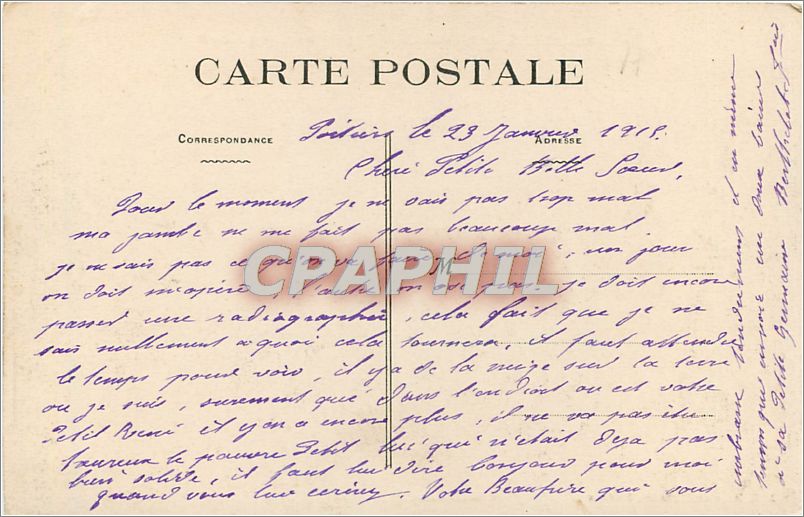 CARTE POSTALE
CORRESPONDANCE
ADRESSE
Poitiers le 23 Janvier 1915.
Cheri Petite Belle Soeur,
Pour le moment je ne vais pas trop mal
ma jambe ne me fait pas beaucoup mal.
je ne sais pas ce qu'on va faire de moi, un jour
on doit m'opéré, l'autre on ose pas, je doit encore
passer une radiographie, cela fait que je ne
sais nullement a quoi cela tournera, il faut attendre
le temps pour voir, il y a de la neige sur la terre
ou je suis, surement que dans l'endroit ou est votre
Petit René il y en a encore plus, il ne va pas être
heureux le pauvre Petit lui qui n'était deja pas
bien solide, il faut lui dire bonjour pour moi
quand vous lui ecrirez. Votre Beaufrère qui vous
embrasse tendrement et en même
temps que envoie un doux baiser
a sa Petite Germaine Berthelot
CPAPHIL